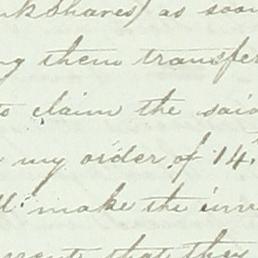 Shares) as soon
them transfer
to claim the said
my order of 14
make the
that they